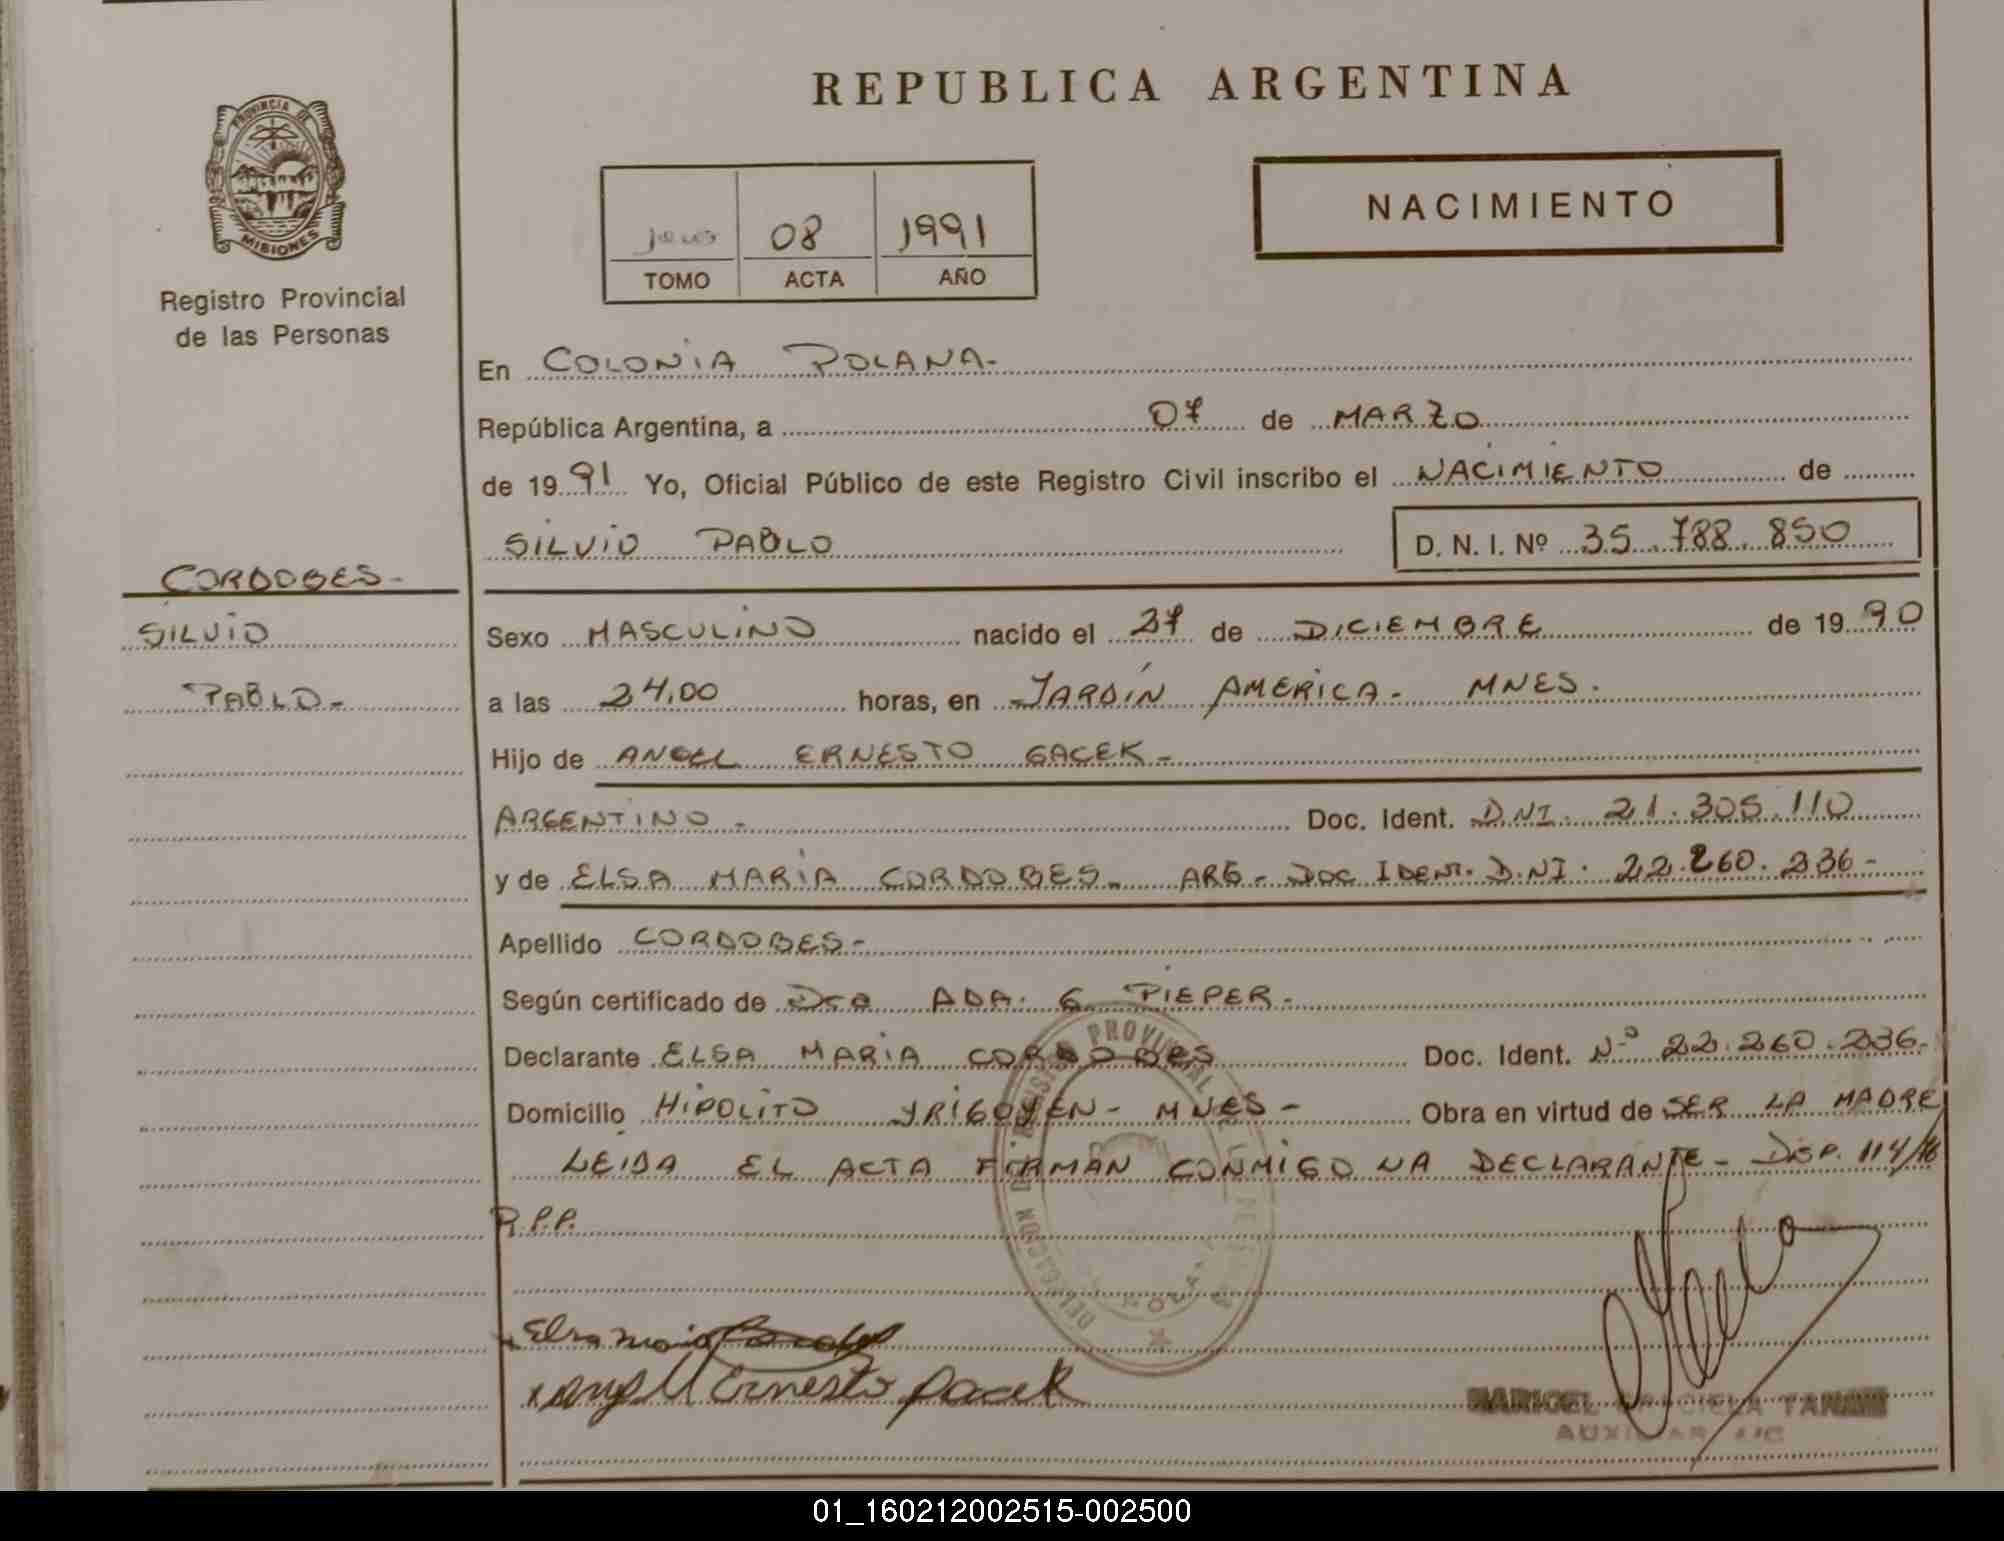 REPUBLICA ARGENTINA
PROVINCIA DE
MISIONES
Registro Provincial
de las Personas
08 1991
TOMO ACTA AÑO
NACIMIENTO
En COLONIA POLANA-
República Argentina, a 07 de MARZO
de 1991 Yo, Oficial Público de este Registro Civil inscribo el NACIMIENTO de
SILVIO PABLO D. N. I. Nº 35.788.850
CORDOBES-
SILVIO
PABLO-
Sexo MASCULINO nacido el 27 de DICIEMBRE de 1990
a las 24,00 horas, en JARDIN AMERICA- MNES.
Hijo de ANGEL ERNESTO GACEK-
ARGENTINO- Doc. Ident. D.NI. 21.305.110
y de ELSA MARIA CORDOBES- ARG- DOC IDENT. D.NI. 22.260.236-
Apellido CORDOBES-
Según certificado de Dra ADA. G PIEPER-
Declarante ELSA MARIA CORDOBES Doc. Ident. Nº 22.260.236-
Domicilio HIPOLITO YRIGOYEN- MNES- Obra en virtud de SER LA MADRE
LEIDA EL ACTA FIRMAN CONMIGO LA DECLARANTE- DISP. 114/
R.P.P.
DELEGACION DEL REGISTRO PROVINCIAL DE
POLANA
Elsa Maria Cordobes
x Angel Ernesto Gacek
MARICEL GRACIELA
AUXILIAR
01_160212002515-002500